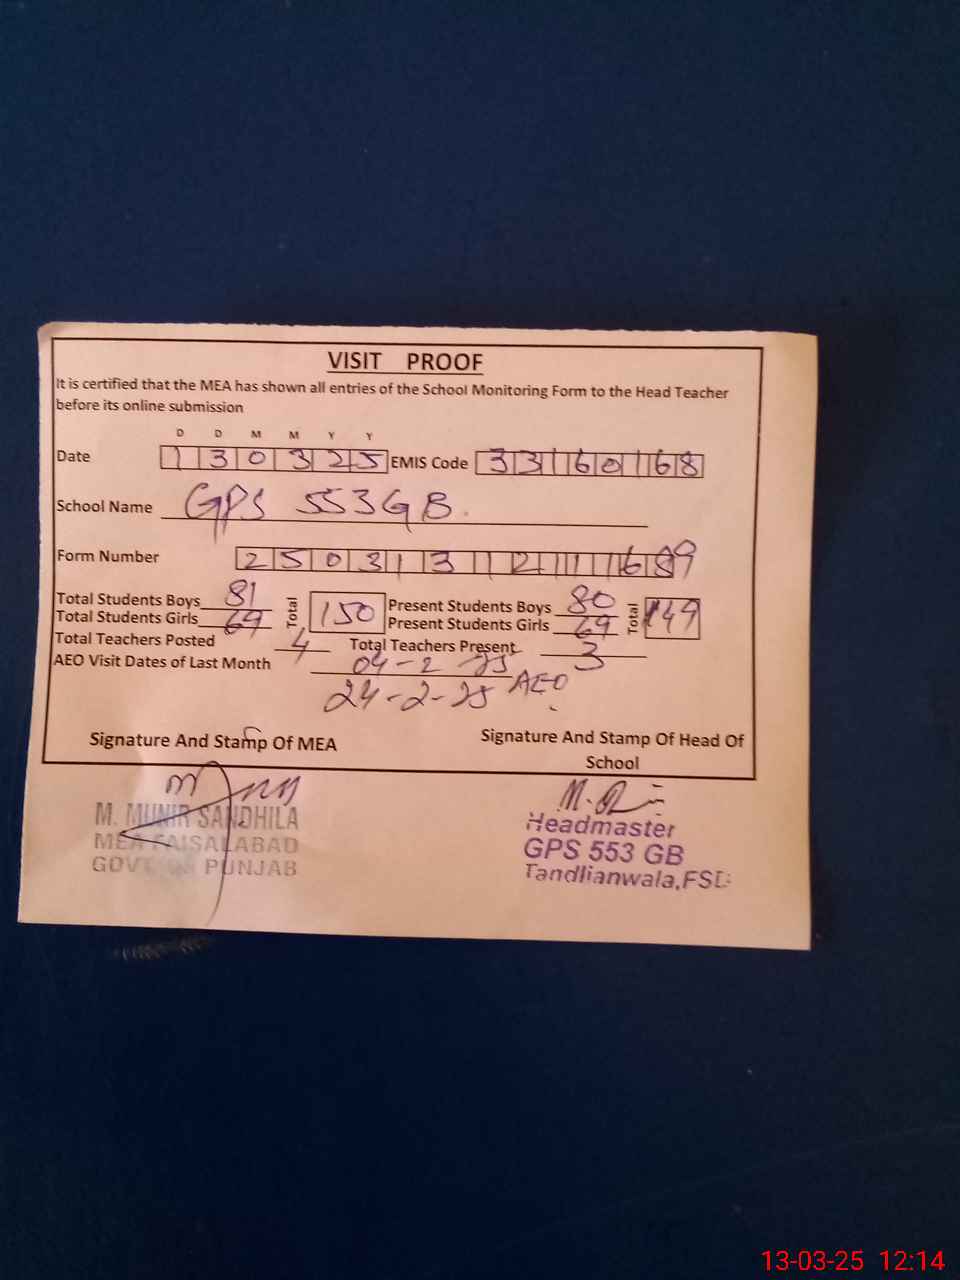 VISIT PROOF
It is certified that the MEA has shown all entries of the School Monitoring Form to the Head Teacher
before its online submission
D D M M Y Y
Date 130325 EMIS Code 33160168
School Name GPS 553GB.
Form Number
Total Students Boys 81 Total 150 Present Students Boys 80 Total 149
Total Students Girls 69 Present Students Girls 69
Total Teachers Posted 4 Total Teachers Present 3
AEO Visit Dates of Last Month 04-2-25
24-2-25 AEO
Signature And Stamp Of MEA Signature And Stamp Of Head Of
School
M. MUNIR SANDHILA
MEA FAISALABAD
GOVT PUNJAB
Headmaster
GPS 553 GB
Tandlianwala,FSD
13-03-25 12:14